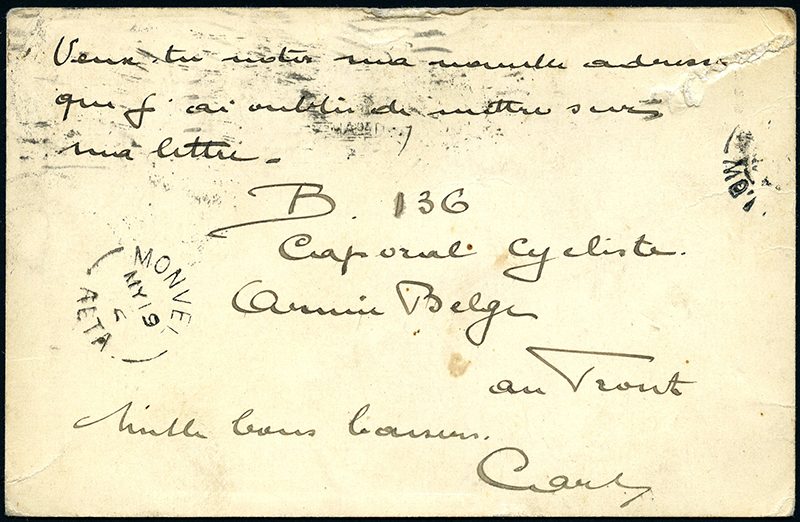 Veux-tu noter ma nouvelle adresse
que j'ai oublié de mettre sur
ma lettre.
B. 136
Caporal Cycliste.
Armée Belge
au Front
Mille bons baisers.
MONVE
MY 19
ALTA
MO